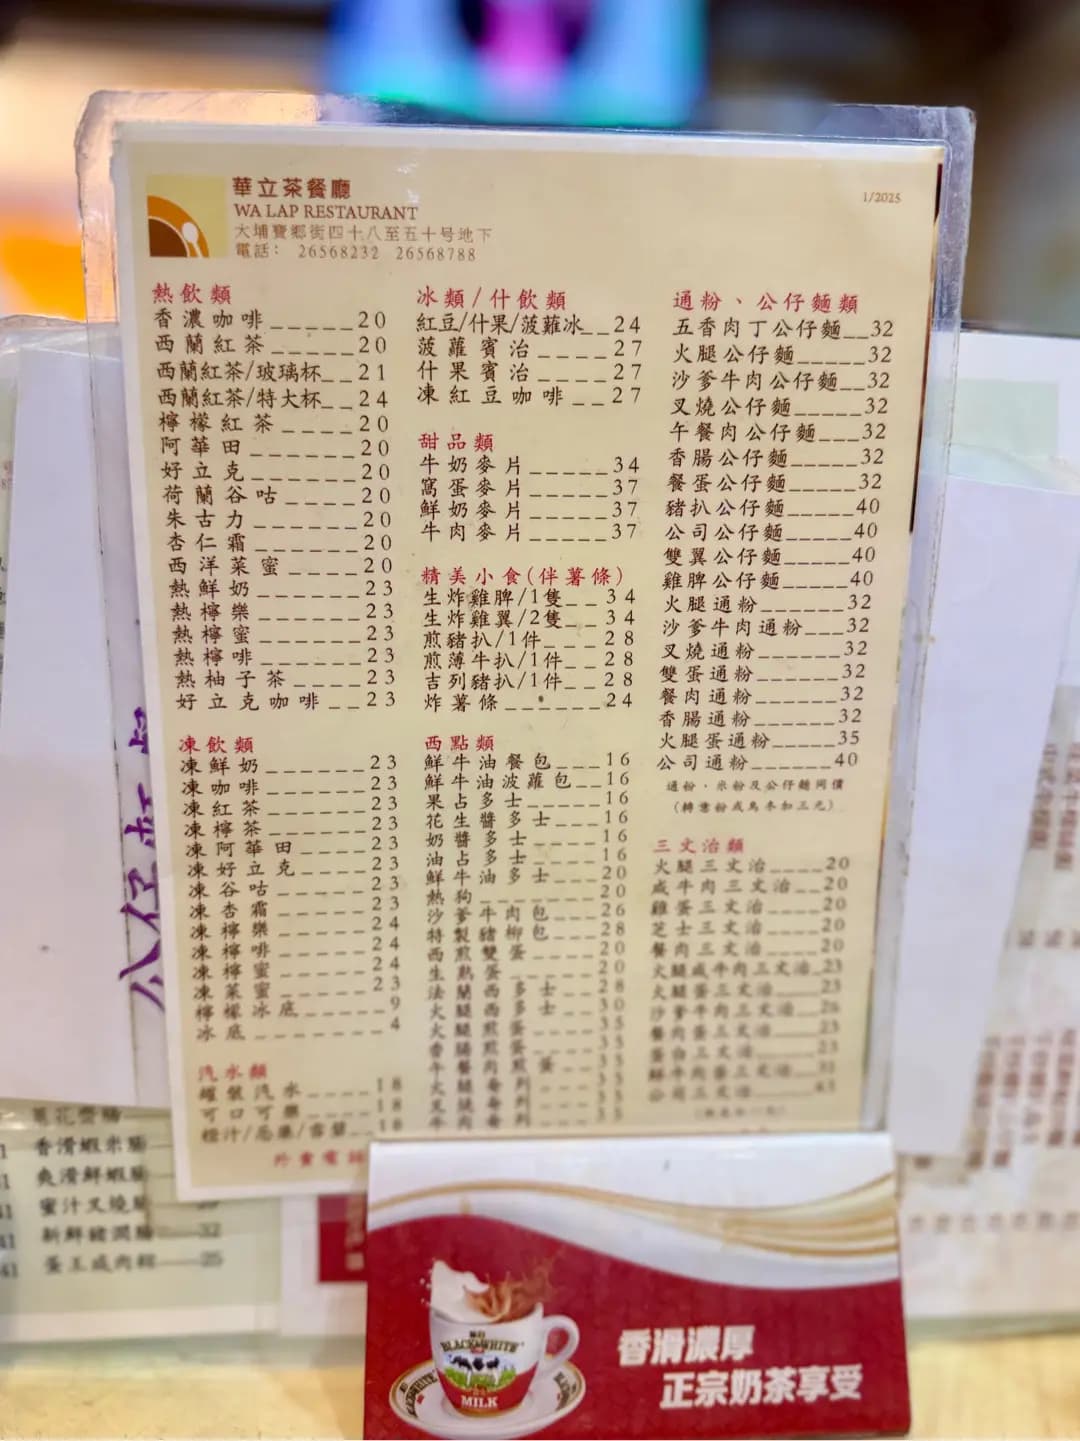 華立茶餐廳
WA LAP RESTAURANT
大埔寶鄉街四十八至五十号地下
電話： 26568232 26568788
1/2025
熱飲類
香濃咖啡_____20
西蘭紅茶_____20
西蘭紅茶/玻璃杯__21
西蘭紅茶/特大杯__24
檸檬紅茶____20
阿華田______20
好立克______20
荷蘭谷咕____20
朱古力______20
杏仁霜______20
西洋菜蜜____20
熱鮮奶______23
熱檸樂______23
熱檸蜜______23
熱檸啡______23
熱柚子茶____23
好立克咖啡__23
凍飲類
凍鮮奶______23
凍咖啡______23
凍紅茶______23
凍檸茶______23
凍阿華田____23
凍好立克____23
凍谷咕______23
凍杏霜______23
凍檸樂______24
凍檸啡______24
凍檸蜜______24
凍菜蜜______23
檸檬冰底____9
冰底________4
汽水類
罐裝汽水____18
可口可樂____18
橙汁/忌廉/雪碧__18
冰類/什飲類
紅豆/什果/菠蘿冰__24
菠蘿賓治____27
什果賓治____27
凍紅豆咖啡__27
甜品類
牛奶麥片_____34
窩蛋麥片_____37
鮮奶麥片_____37
牛肉麥片_____37
精美小食(伴薯條)
生炸雞脾/1隻__34
生炸雞翼/2隻__34
煎豬扒/1件___28
煎薄牛扒/1件__28
吉列豬扒/1件__28
炸薯條_______24
西點類
鮮牛油餐包___16
鮮牛油波蘿包__16
果占多士_____16
花生醬多士___16
奶醬多士_____16
油占多士_____16
鮮牛油多士___20
熱狗________20
沙爹牛肉包___26
特製豬柳包___28
西煎雙蛋____20
生熟蛋______20
法蘭西多士__28
火腿西多士__30
火腿煎蛋____35
香腸煎蛋____35
午餐肉煎蛋__35
火腿奄列____35
叉燒奄列____35
牛肉奄列____35
通粉、公仔麵類
五香肉丁公仔麵__32
火腿公仔麵_____32
沙爹牛肉公仔麵__32
叉燒公仔麵_____32
午餐肉公仔麵___32
香腸公仔麵_____32
餐蛋公仔麵_____32
豬扒公仔麵_____40
公司公仔麵_____40
雙翼公仔麵_____40
雞脾公仔麵_____40
火腿通粉______32
沙爹牛肉通粉___32
叉燒通粉______32
雙蛋通粉______32
餐肉通粉______32
香腸通粉______32
火腿蛋通粉_____35
公司通粉______40
通粉．米粉及公仔麵同價
(轉意粉或烏冬加三元)
三文治類
火腿三文治____20
咸牛肉三文治__20
雞蛋三文治____20
芝士三文治____20
餐肉三文治____20
火腿咸牛肉三文治_23
火腿蛋三文治___23
沙爹牛肉三文治__26
餐肉蛋三文治___23
蛋白三文治____23
鮮牛肉蛋三文治__31
公司三文治____43
外賣電話
香滑蝦米腸
爽滑鮮蝦腸
蜜汁叉燒腸
新鮮豬潤腸——32
蛋王咸肉粽——25
BLACK&WHITE
MILK
香滑濃厚
正宗奶茶享受